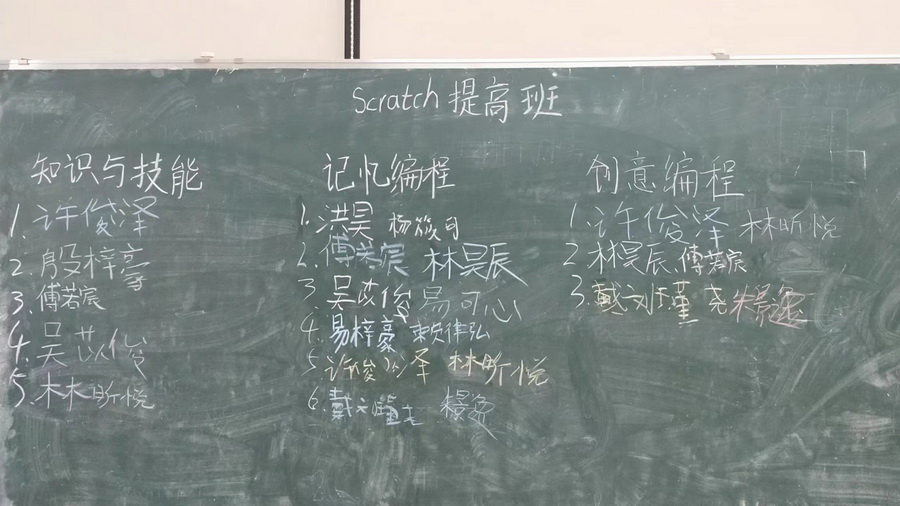 Scratch 提高班
知识与技能
1. 许俊泽
2. 殷梓豪
3. 傅若宸
4. 吴苡俊
5. 林昕悦
记忆编程
1. 洪昊 杨筱月
2. 傅若宸 林昊辰
3. 吴苡俊 易可心
4. 易梓豪 赖律弘
5. 许俊泽 林昕悦
6. 戴文
创意编程
1. 许俊泽 林昕悦
2. 林昊辰、傅若宸
3. 戴